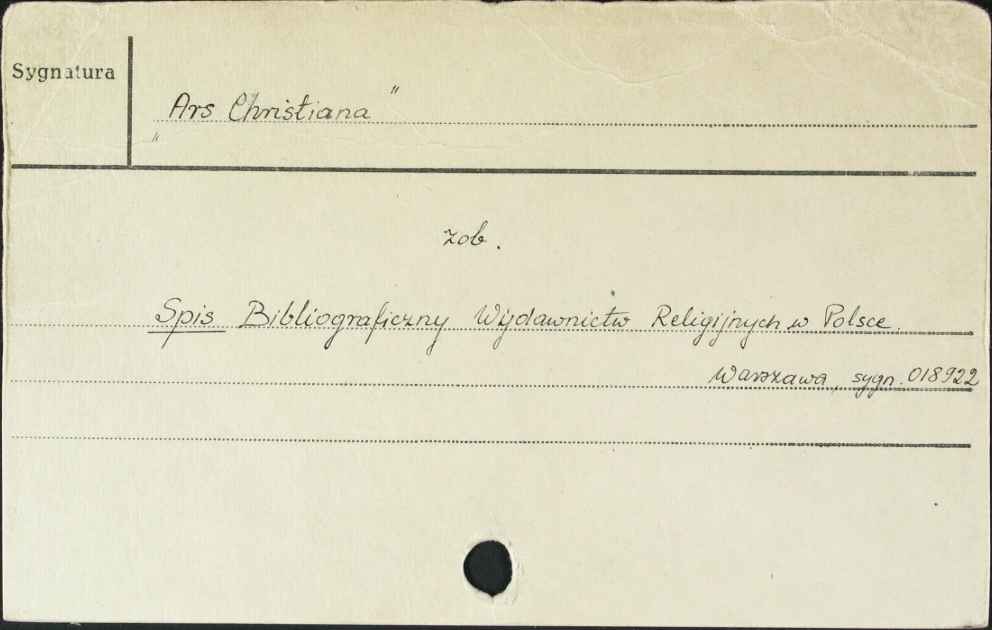 Sygnatura
„Ars Christiana”
zob.
Spis Bibliograficzny Wydawnictw Religijnych w Polsce.
Warszawa, sygn. 018922